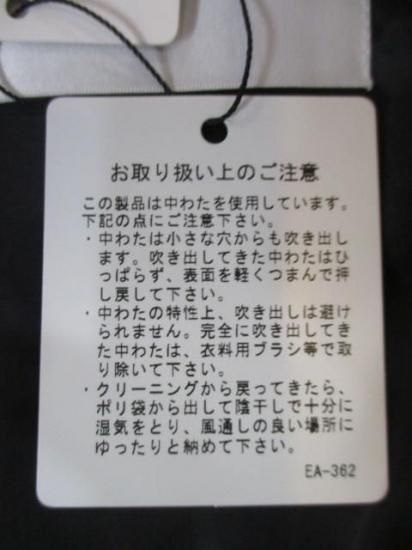 お取り扱い上のご注意
この製品は中わたを使用しています。
下記の点にご注意下さい。
・中わたは小さな穴からも吹き出し
ます。吹き出してきた中わたはひ
っぱらず、表面を軽くつまんで押
し戻して下さい。
・中わたの特性上、吹き出しは避け
られません。完全に吹き出してき
た中わたは、衣料用ブラシ等で取
り除いて下さい。
・クリーニングから戻ってきたら、
ポリ袋から出して陰干しで十分に
湿気をとり、風通しの良い場所に
ゆったりと納めて下さい。
EA-362